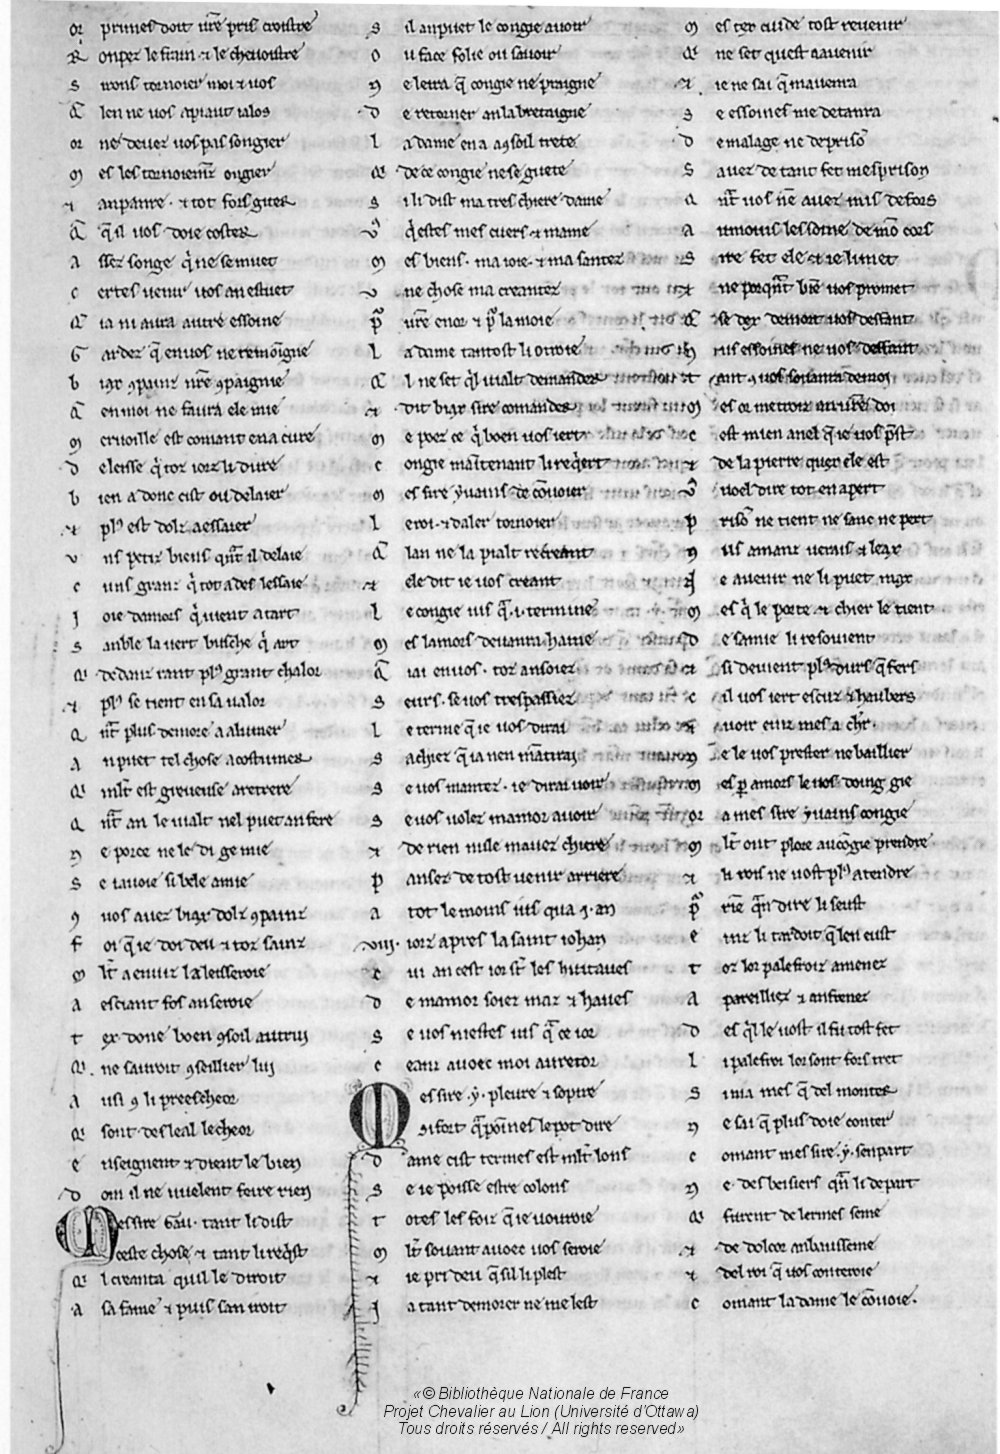 Or primes doit ur̄e pris croistre
R onpez le frain ⁊ le chevoistre
S irons tornoier moi ⁊ vos
Q̄ len ne vos apiaut ialos
Or ne devez vos pas songier
M es les tornoiemz̄ ongier
⁊ anpanre ⁊ tot fors giter
Q̄ q̄ il vos doie coster
A ssez songe q̇ ne se muet
C ertes venir vos an estuet
Q̄ ia ni aura autre essoine
G ardez q̄ en vos ne remoigne
B iax ꝯpainz nr̄e ꝯpaignie
Q̄ en moi ne faura ele mie
M ervoille est comant en a cure
D e leisse q̇ toz iorz li dure
B ien a donc cist ou delaier
⁊ plꝰ est dolz a essaier
V ns petiz biens qn̄t il delaie
C uns granz q̇ tot ades lessaie
J oie damors q̇ vient a tart
S anble la vert busche q̇ art
Q̄ dedanz rant plꝰ grant chalor
⁊ plꝰ se tient en sa valor
Q n̄t plus demore a alumer
A n puet tel chose acostumer
Q̄ ml̄t est greveuse a retrere
Q n̄t an le vialt nel puet an fere
N e por ce ne le di ge mie
S e iavoie si bele amie
ꝯ vos avez biax dolz ꝯpainz
F oi q̄ ie doi deu ⁊ toz sainz
M lt̄ a enviz la leisseroie
A esciant fos an seroie
T ex done boen ꝯsoil autrui
Q̄ ne savroit ꝯseillier lui
A usi ꝯ li preescheor
Q̄ sont desleal lecheor
E nseignent ⁊ dient le bien
D om il ne vuelent feire rien
Mes sire Gau. tant li dist
ceste chose ⁊ tant li req̇st
Q̄ l creanta quil le diroit
A sa fame ⁊ puis san iroit
S il an puet le congie avoir
O u face folie ou savoir
N e leira q̄ congie ne praigne
D e retorner an la bretaigne
L a dame en a a ꝯsoil trete
Q̄ de ce congie ne se guete
S i li dist ma tres chiere dame
V̄ q̇ estes mes cuers ⁊ mame
M es biens. ma ioie. ⁊ ma santez
V ne chose ma creantez
P̄ ur̄e enor ⁊ p̄ la moie
L a dame tantost li otroie
Q̄ l ne set q̇l vialt demander
⁊ dit biax sire comander
M e poez ce q̇ boen vos iert
C ongie maintenant li req̇ert
M es sire yvains de cōvoier
L e roi. ⁊ daler tornoier
Q̄ lan ne lapialt recreant
⁊ ele dit ie vos creant
L e congie iusq̄ .i. termine
M es lamors devanra haine
Q̄ iai en vos. toz an soiez
S eurs. se vos trespassiez
L e terme q̄ ie vos dirai
S achiez q̄ ia nen mātirai
S e vos mantez. ie dirai voir
S e vos volez mamor avoir
⁊ de rien nule mavez chiere
P anser de tost venir arriere
A tot le moins iusqua .i. an
.viii. iorz apres la saint iohan
C ui an cest ior st̄ les huitaves
D e mamor soiez maz ⁊ haves
S e vos niestes iusq̄ ce ior
C eanz avoec moi au retor
Mes sire .y. pleure ⁊ sopire
Si fort q̄ poines le pot dire
D ame cist termes est mlt̄ lons
S e ie poisse estre colons
T otes les foiz q̄ ie voudroie
M lt̄ sovant avoec vos seroie
⁊ ie pri deu q̄ sil li plest
J a tant demorer ne me lest
M es tex cuide tost revenir
Q̄ ne set quest a avenir
⁊ ie ne sai q̄ mavenra
S e essoines me detanra
D e malage ne de prison
S avez de tant fet mesprison
Q n̄t vos nē avez mis defors
A u mouis lessoine de mō cors
S ire fet ele ⁊ ie li met
⁊ ne porqn̄t bien vos promet
Q̄ se dex de mort vos deffant
N us essoines ne vos deffant
T ant ꝯ vos sovanra de moi
M es or metroiz an vr̄e doi
C est mien anel q̄ ie vos prest
⁊ de la pierre quex ele est
V̄ voel dire tot en apert
P rison ne tient ne sanc ne pert
N us amanz verais ⁊ leax
N e avenir ne li puet max
M es q̇ le porte ⁊ chier le tient
D e samie li resovient
⁊ si devient plꝰ durs q̄ fers
C il vos iert escuz ⁊ haubers
⁊ voir einz mes a chr̄.
N e le vos prester ne baillier
M es p̄ amors le vos doing gie
Or a mes sire yvains congie
M lt̄ ont plore au cōgie prendre
⁊ li rois ne vost plꝰ atendre
P̄ rien q̄n dire li seust
E inz li tardoit q̄ len eust
T oz lor palefroiz amenez
A pareilliez ⁊ anfrenez
D es q̇l le vost il fu tost fet
L i palefroi lor sont fors tret
S i nia mes q̄ del monter
N e sai q̄ plus doie conter
C omant mes sire .y. sen part
N e des beisiers qn̄ li depart
Q̄ furent de lermes seme
⁊ de dolcor anbausseme
⁊ del roi q̄ vos conteroie
C omant la dame le cōvoie.
«© Bibliothèque Nationale de France
Projet Chevalier au Lion (Université d'Ottawa)
Tous droits réservés / All rights reserved»